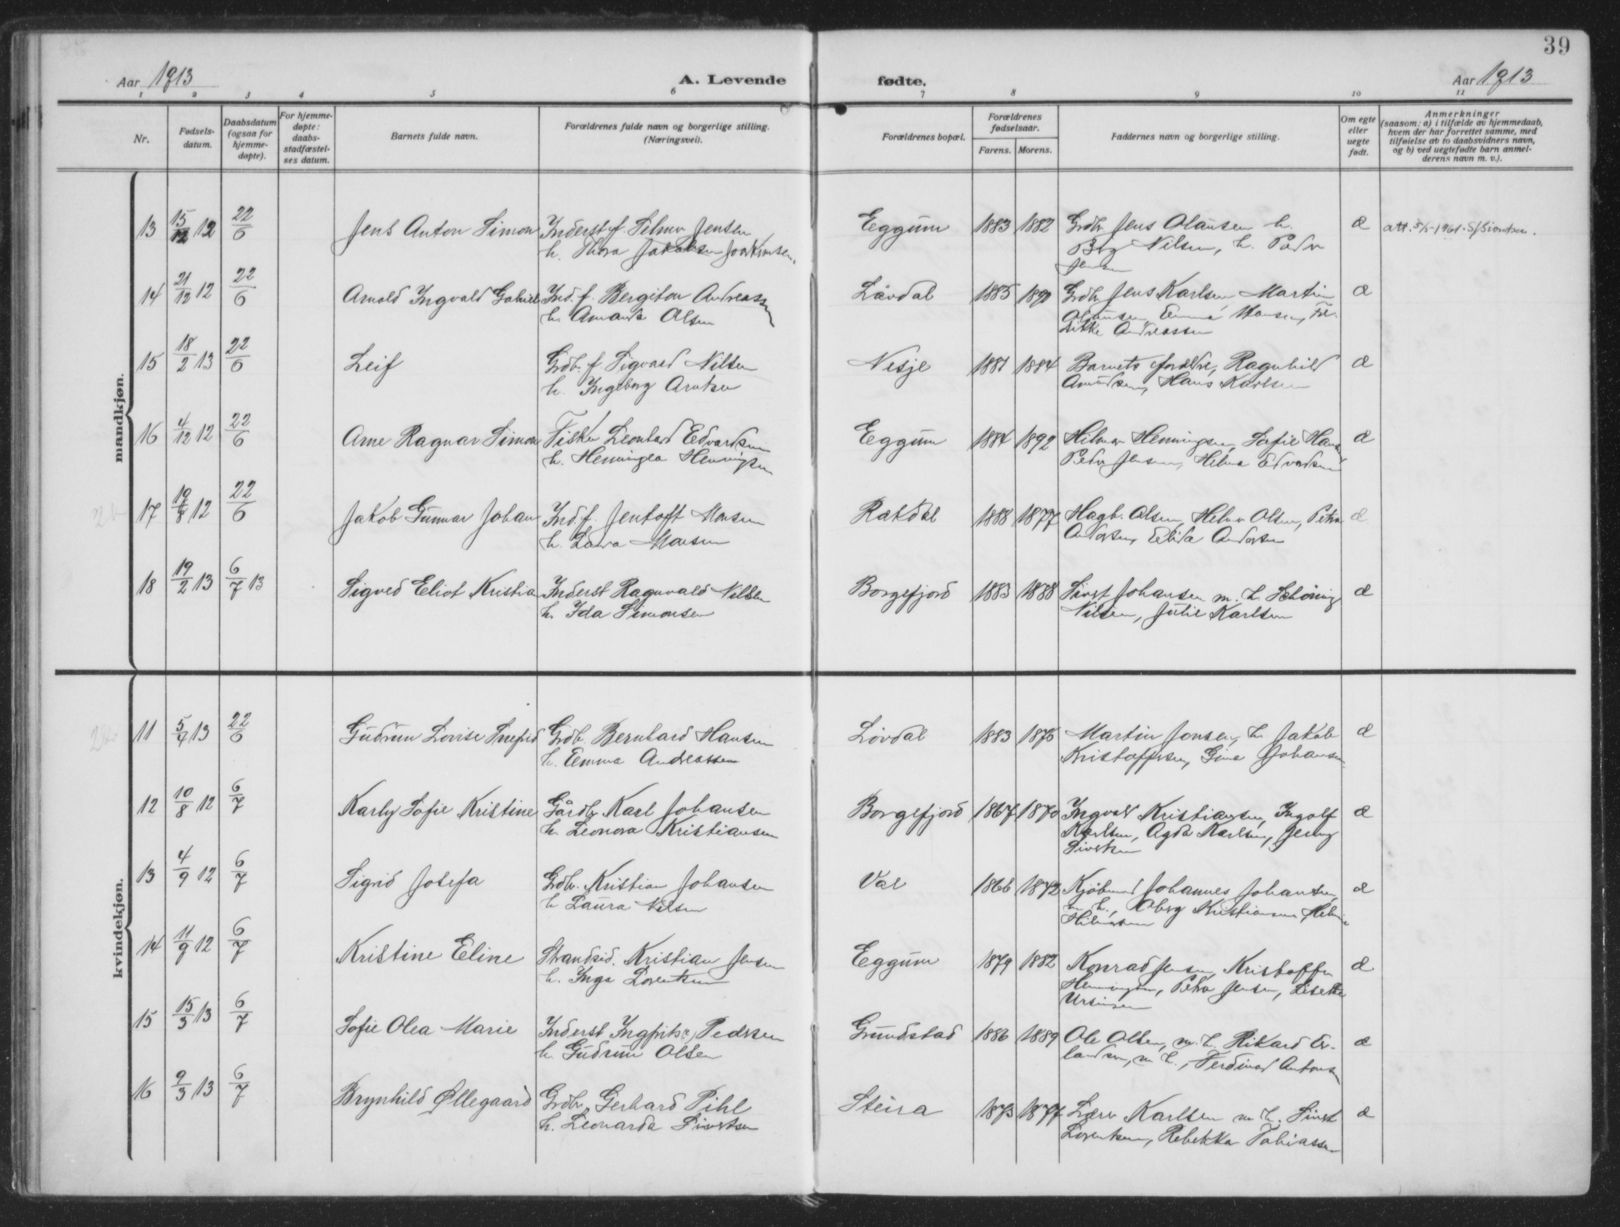 39
Aar 1913
A. Levende
fødte.
Aar 1913
1 2 3 4 5 6 7 8 9 10 11
Nr.
Fødsels-
datum.
Daabsdatum
(ogsaa for
hjemme-
døpte).
For hjemme-
døpte:
daabs-
stadfæstel-
ses datum.
Barnets fulde navn.
Forældrenes fulde navn og borgerlige stilling.
(Næringsvei).
Forældrenes bopæl.
Forældrenes
fødselsaar.
Farens. Morens.
Faddernes navn og borgerlige stilling.
Om egte
eller
uegte
født.
Anmerkninger
(saasom: a) i tilfælde av hjemmedaab,
hvem der har forrettet samme, med
tilføielse av to daabsvidners navn,
og b) ved uegtefødte barn anmel-
derens navn m. v.).
mandkjøn.
13 15/12 12 22/6 Jens Anton Simon Inderst f. Hilmar Jensen Eggum 1883 1882 Grdbr Jens Olausen h. æ
h. Thora Jakobsen
Nilsen, h. Peder
Jensen
14 21/12 12 22/6 Arnold Ingvald Gabriel Ind. f. Bergiton Andreassen Løvdal 1885 1890 Grdbr Jens Karlsen, Martin æ
h. Amanda Olsen
Olausen, Emma Hansen,
Andreassen
15 18/2 13 22/6 Leif Grdb. f. Sigvard Nilsen Nesje 1881 1884 Barnets forældre, Ragnhild æ
h. Ingeborg Arntsen
Amundsen, Hans Karlsen
16 4/12 12 22/6 Arne Ragnar Simon Fisker Leonhard Edvardsen Eggum 1884 1892 Hilmar Henningsen, Sofie Hansen æ
h. Henningea Henningsen
Peder Jensen, Helma Edvardsen
17 19/8 12 22/6 Jakob Gunnar Johan Ind. f. Jentoft Monsen Rakdal 1888 1877 Hagb. Olsen, Helma Olsen, Petra æ
h. Laura Monsen
Andersen, Elida Andersen
18 19/2 13 6/7 13 Sigved Eliot Kristian Inderst Ragnvald Nilsen Borgefjord 1883 1888 Sivert Johansen m. h. æ
h. Ida Simonsen
Nilsen, Julie Karlsen
kvindekjøn.
11 5/4 13 22/6 Gudrun Lovise Snefrid Grdb. Bernhard Hansen Løvdal 1883 1875 Martin Jonsen, h. Jakob æ
h. Emma Andreassen
Kristoffersen, Gina Johansen
12 10/8 12 6/7 Karly Sofie Kristine Gårdb. Karl Johansen Borgefjord 1867 1870 Ingvald Kristiansen, Ingolf æ
h. Leonora Kristiansen
Karlsen, Agda Karlsen, Jenny
Sivertsen
13 4/9 12 6/7 Sigrid Josefa Grdbr. Kristian Johansen Val 1866 1872 Kjøbmand Johannes Johansen æ
h. Laura Nilsen
m. h., Kristiansen
14 11/9 12 6/7 Kristine Eline Strandsid. Kristian Jensen Eggum 1879 1882 Konrad Jensen, Kristoffer æ
h. Inga Lorentsen
Henningsen, Petra Jensen, Lisette
Ursinsen
15 15/3 13 6/7 Sofie Olea Marie Inderst Ingfrits Pedersen Grundstad 1886 1889 Ole Olsen, m. h., Rikard Er- æ
h. Gudrun Olsen
landsen, m. h., Ferdinand Antonsen
16 9/3 13 6/7 Brynhild Øllegaard Grdbr. Gerhard Pihl Steira 1873 1877 Karlsen m. h. Sivert æ
h. Leonarda Sivertsen
Lorentsen, Rebekka Tobiassen